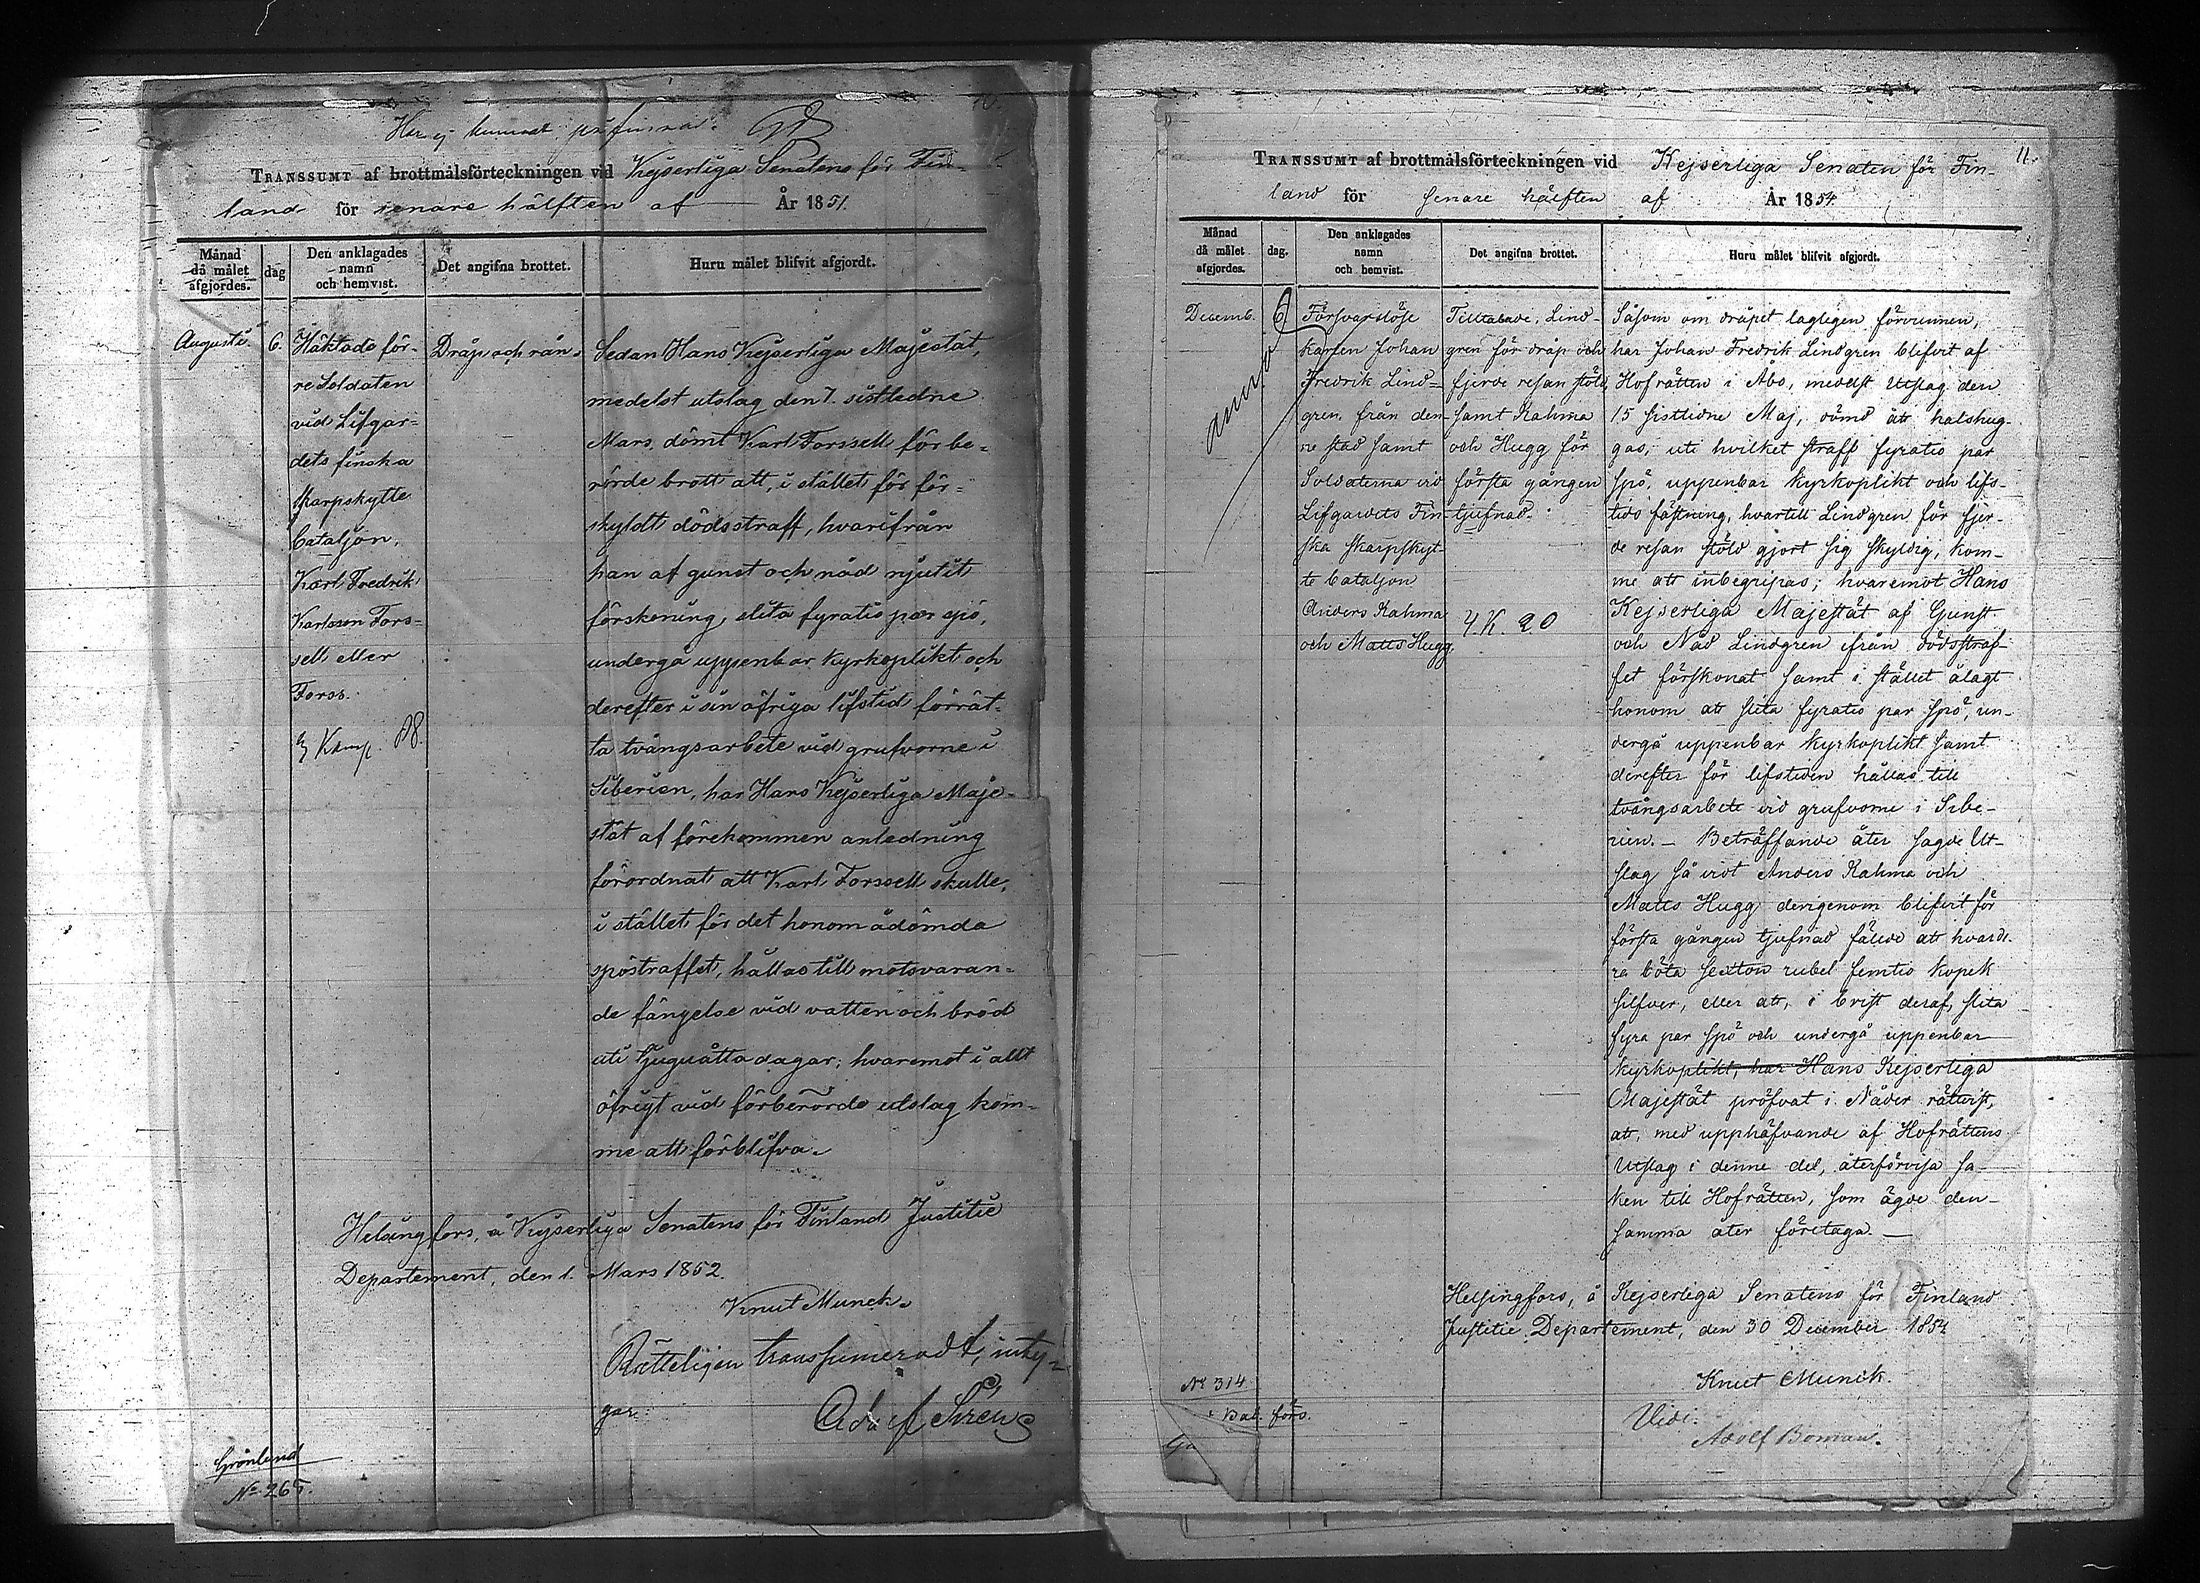 10.
Har ej kunnat påfinna.
TRANSSUMT af brottmålsförteckningen vid Kejserliga Senatens för Fin-
land för senare hälften af År 1851.
Månad då målet afgjordes.
dag
Den anklagades namn och hemvist.
Det angifna brottet.
Huru målet blifvit afgjordt.
Augusti
6.
Häktade för-
re Soldaten
vid Lifgar-
dets finska
skarpskytte
bataljon,
Karl Fredrik
Karlsson Fors-
sell eller
Forss.
Dråp och rån.
Sedan Hans Kejserliga Majestät,
medelst utslag den 7. sistledne
Mars, dömt Karl Forssell för be-
rörde brott att, i stället för för-
skyldt dödsstraff, hvarifrån
han af gunst och nåd njutit
förskoning, slita fyratio par spö,
undergå uppenbar kyrkoplikt och
derefter i sin öfriga lifstid förrät-
ta tvångsarbete vid grufvorne i
Siberien, har Hans Kejserliga Maje-
stät af förekommen anledning
förordnat att Karl Forssell skulle,
i stället för det honom ådömda
spöstraffet, hållas till motsvaran-
de fängelse vid vatten och bröd
uti tjuguåtta dagar; hvaremot i allt
öfrigt vid förberörde utslag kom-
me att förblifva.
Helsingfors, å Kejserliga Senatens för Finland Justitie
Departement, den 1. Mars 1852.
Knut Munck.
Rätteligen transsumeradt, inty-
gar
Adolf Sirén
Grönlund
No 265.
11.
TRANSSUMT af brottmålsförteckningen vid Kejserliga Senaten för Fin-
land för senare hälften af År 1854.
Månad då målet afgjordes.
dag.
Den anklagades namn och hemvist.
Det angifna brottet.
Huru målet blifvit afgjordt.
Decemb.
6
Försvarslöse
karlen Johan
Fredrik Lind-
gren från den-
ne stad samt
Soldaterna vid
Lifgardets Fin-
ska skarpskyt-
te bataljon
Anders Rahma
och Matts Hugg.
Tilltalade, Lind-
gren för dråp och
fjerde resan stöld,
samt Rahma
och Hugg för
första gången
tjufnad.
4. K. 20
Såsom om dråpet lagligen förvunnen,
har Johan Fredrik Lindgren blifvit af
Hofrätten i Åbo, medelst Utslag den
15 sistlidne Maj, dömd att halshug-
gas, uti hvilket straff fyratio par
spö, uppenbar kyrkoplikt och lifs-
tids fästning, hvartill Lindgren för fjer-
de resan stöld gjort sig skyldig, kom-
me att inbegripas; hvaremot Hans
Kejserliga Majestät af Gunst
och Nåd Lindgren ifrån dödsstraf-
fet förskonat samt i stället ålagt
honom att slita fyratio par spö, un-
dergå uppenbar kyrkoplikt samt
derefter för lifstiden hållas till
tvångsarbete vid grufvorne i Sibe-
rien. – Beträffande åter sagde Ut-
slag så vidt Anders Rahma och
Matts Hugg derigenom blifvit för
första gången tjufnad fälde att hvarde-
ra böta sexton rubel femtio kopek
silfver, eller att, i brist deraf, slita
fyra par spö och undergå uppenbar
kyrkoplikt, har Hans Kejserliga
Majestät pröfvat i Nåder rättvist,
att, med upphäfvande af Hofrättens
Utslag i denne del, återförvisa sa-
ken till Hofrätten, som ägde den-
samma åter företaga. —
Helsingfors, å Kejserliga Senatens för Finland
Justitie Departement, den 30 December 1854
Knut Munck.
Vidi.
Adolf Boman.
No 314